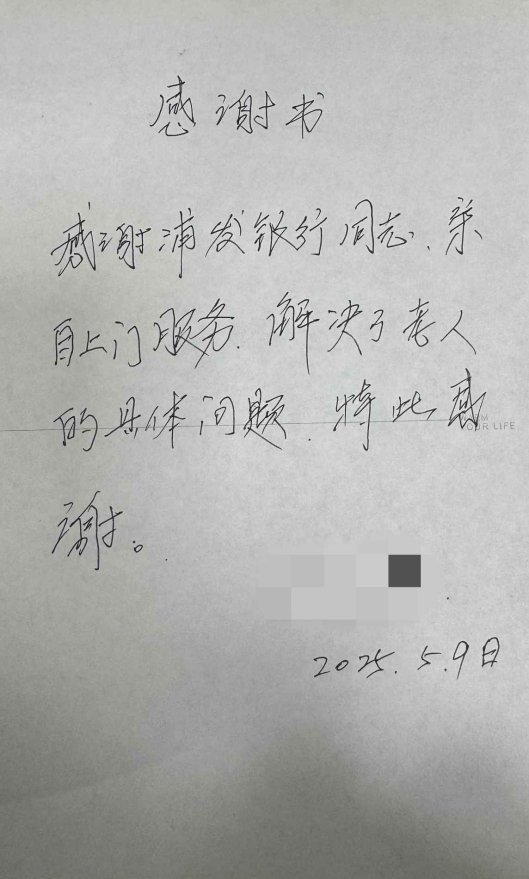 感谢书
感谢浦发银行同志、亲
自上门服务、解决了老人
的具体问题、特此感
谢。
2025.5.9日
OUR LIFE